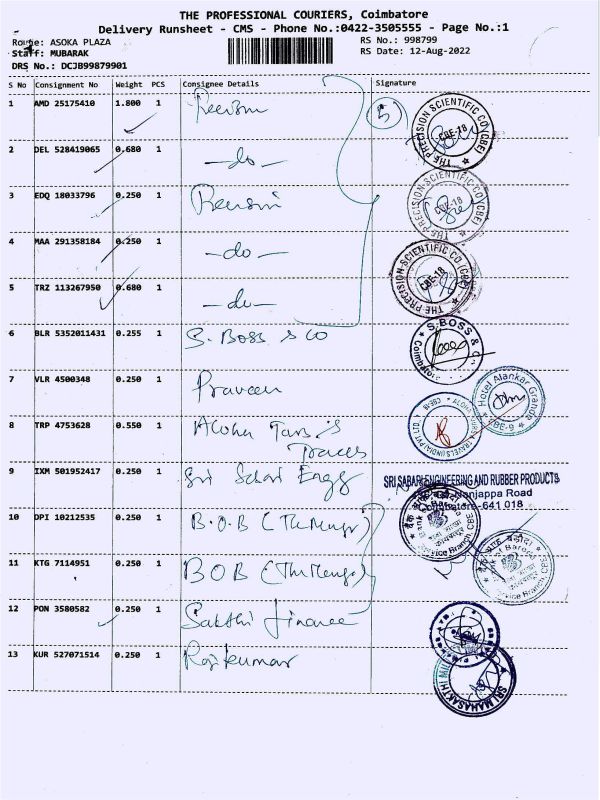 THE PROFESSIONAL COURIERS, Coimbatore
Delivery Runsheet - CMS - Phone No.:0422-3505555 - Page No.:1
Route: ASOKA PLAZA
RS No.: 998799
Staff: MUBARAK
RS Date: 12-Aug-2022
DRS No.: DCJB99879901
S No Consignment No Weight PCS Consignee Details Signature
1 AMD 25175410 1.800 1
5
THE PRECISION SCIENTIFIC CO (CBE) CBE-18
2 DEL 528419065 0.680 1 -do-
3 EDQ 18033796 0.250 1
THE PRECISION SCIENTIFIC CO (CBE) CBE-18
4 MAA 291358184 0.250 1 -do-
THE PRECISION SCIENTIFIC CO (CBE) CBE-18
5 TRZ 113267950 0.680 1 -do-
6 BLR 5352011431 0.255 1 S. Boss & co
S. BOSS & C
7 VLR 4500348 0.250 1 Praveen
Hotel Alankar Grande CBE-9
8 TRP 4753628 0.550 1 Aloha
9 IXM 501952417 0.250 1 Sri Sabari Engg
SRI SABARI ENGINEERING AND RUBBER PRODUCTS
Nanjappa Road
Coimbatore-641 018
10 DPI 10212535 0.250 1 B.O.B (
Service Branch, CBE
11 KTG 7114951 0.250 1 BOB (
Service Branch, CBE
12 PON 3580582 0.250 1 Sakthi finance
13 KUR 527071514 0.250 1 Rajkumar
SRI MAHASAKTHI MIL